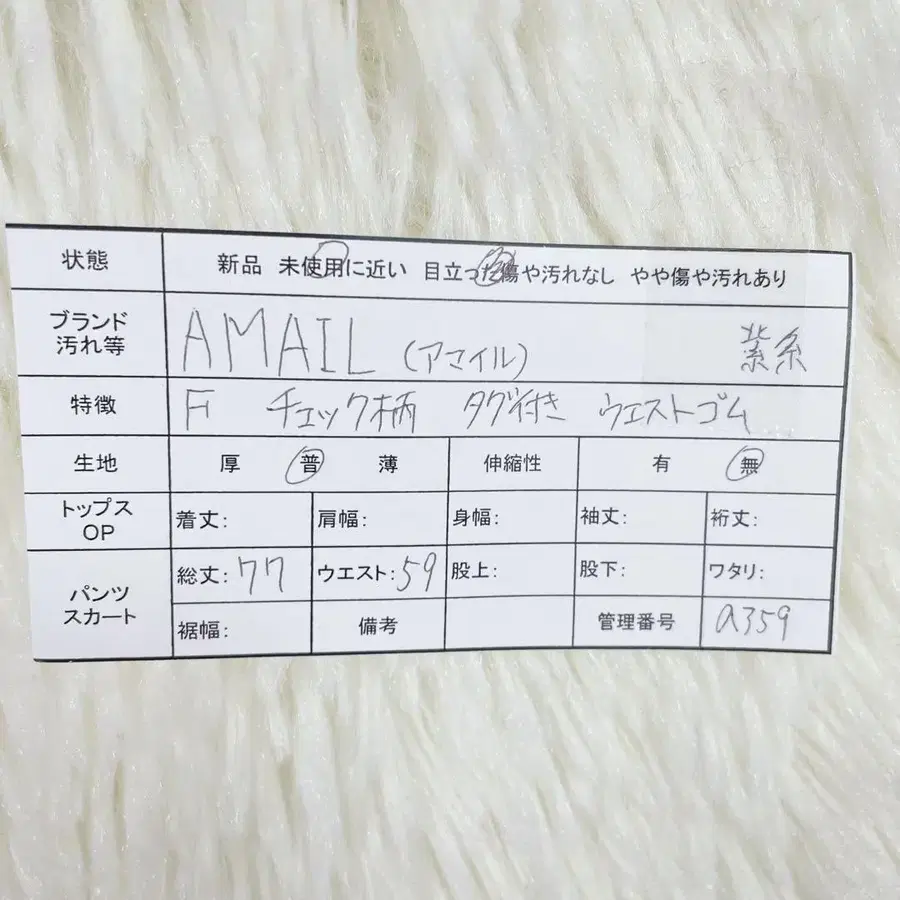 状態 新品 未使用に近い 目立った傷や汚れなし やや傷や汚れあり
ブランド 汚れ等 AMAIL (アマイル) 紫系
特徴 F チェック柄 タグ付き ウエストゴム
生地 厚 普 薄 伸縮性 有 無
トップス OP 着丈: 肩幅: 身幅: 袖丈: 裄丈:
パンツ スカート 総丈: 77 ウエスト: 59 股上: 股下: ワタリ:
裾幅: 備考 管理番号 a359